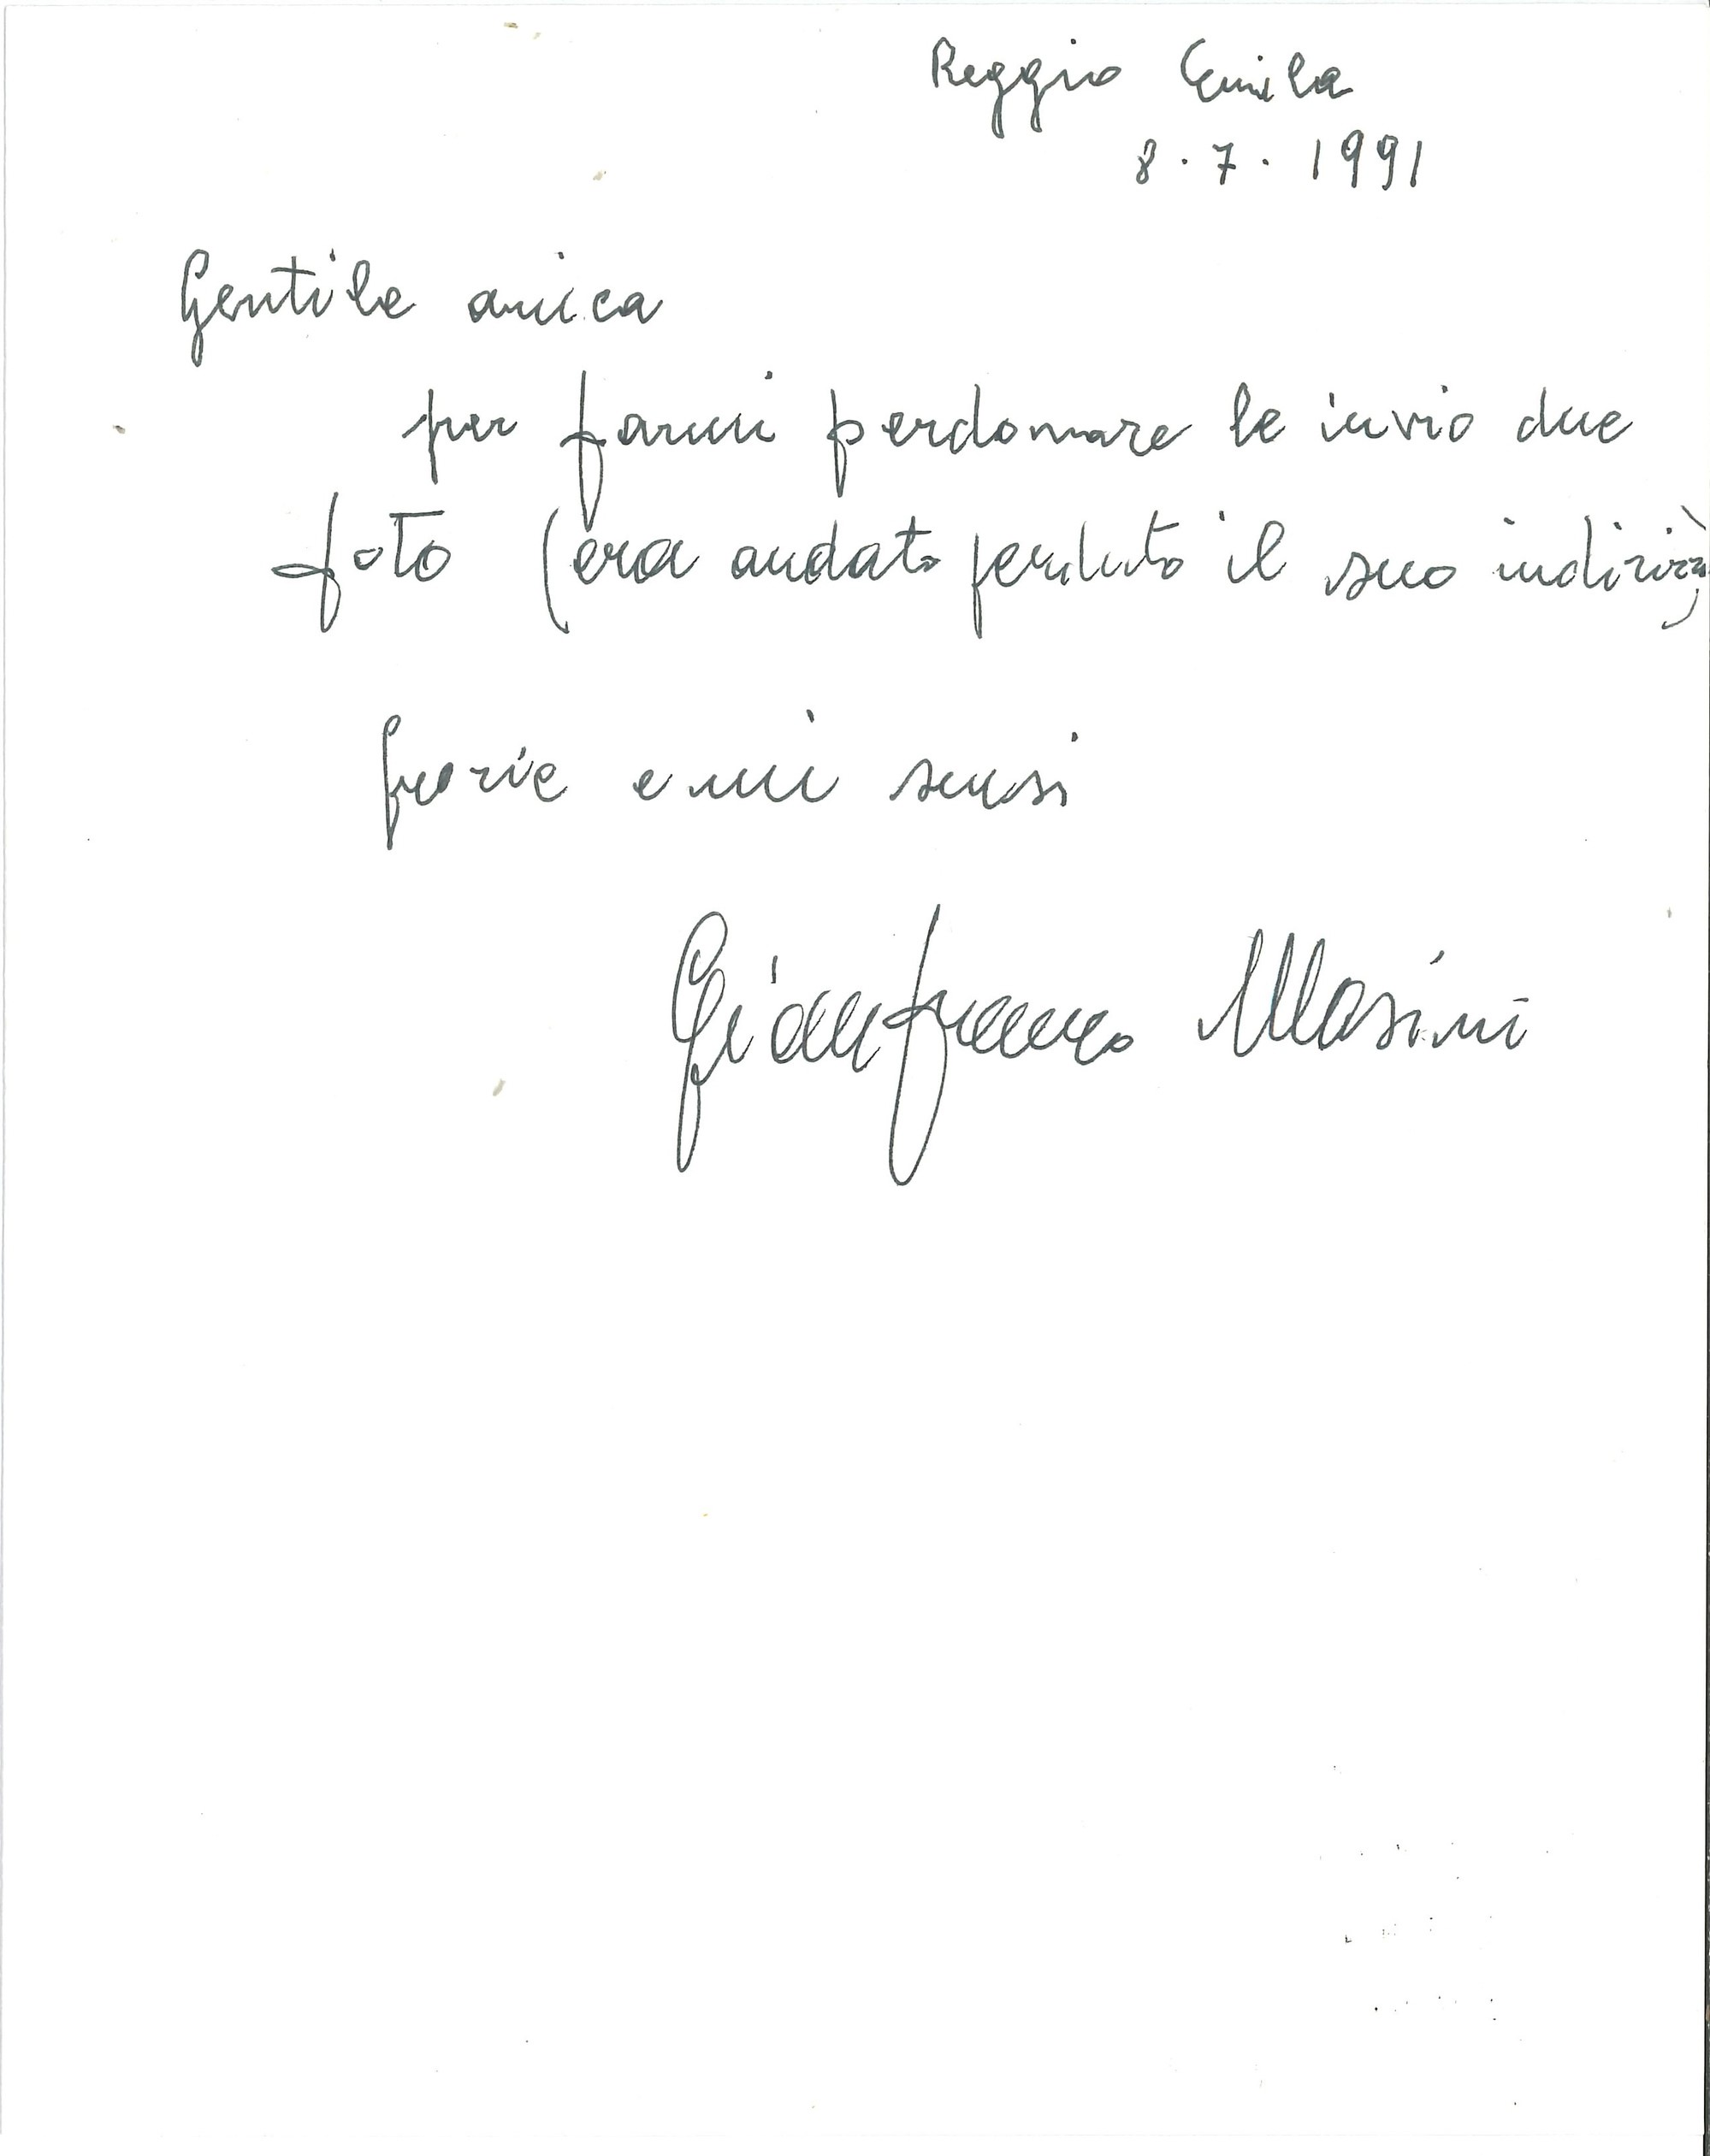 Reggio Emilia
8.7.1991
Gentile amica
per farmi perdonare le invio due
foto (era andato perduto il suo indirizzo)
grazie e mi scusi
Gianfranco Masini